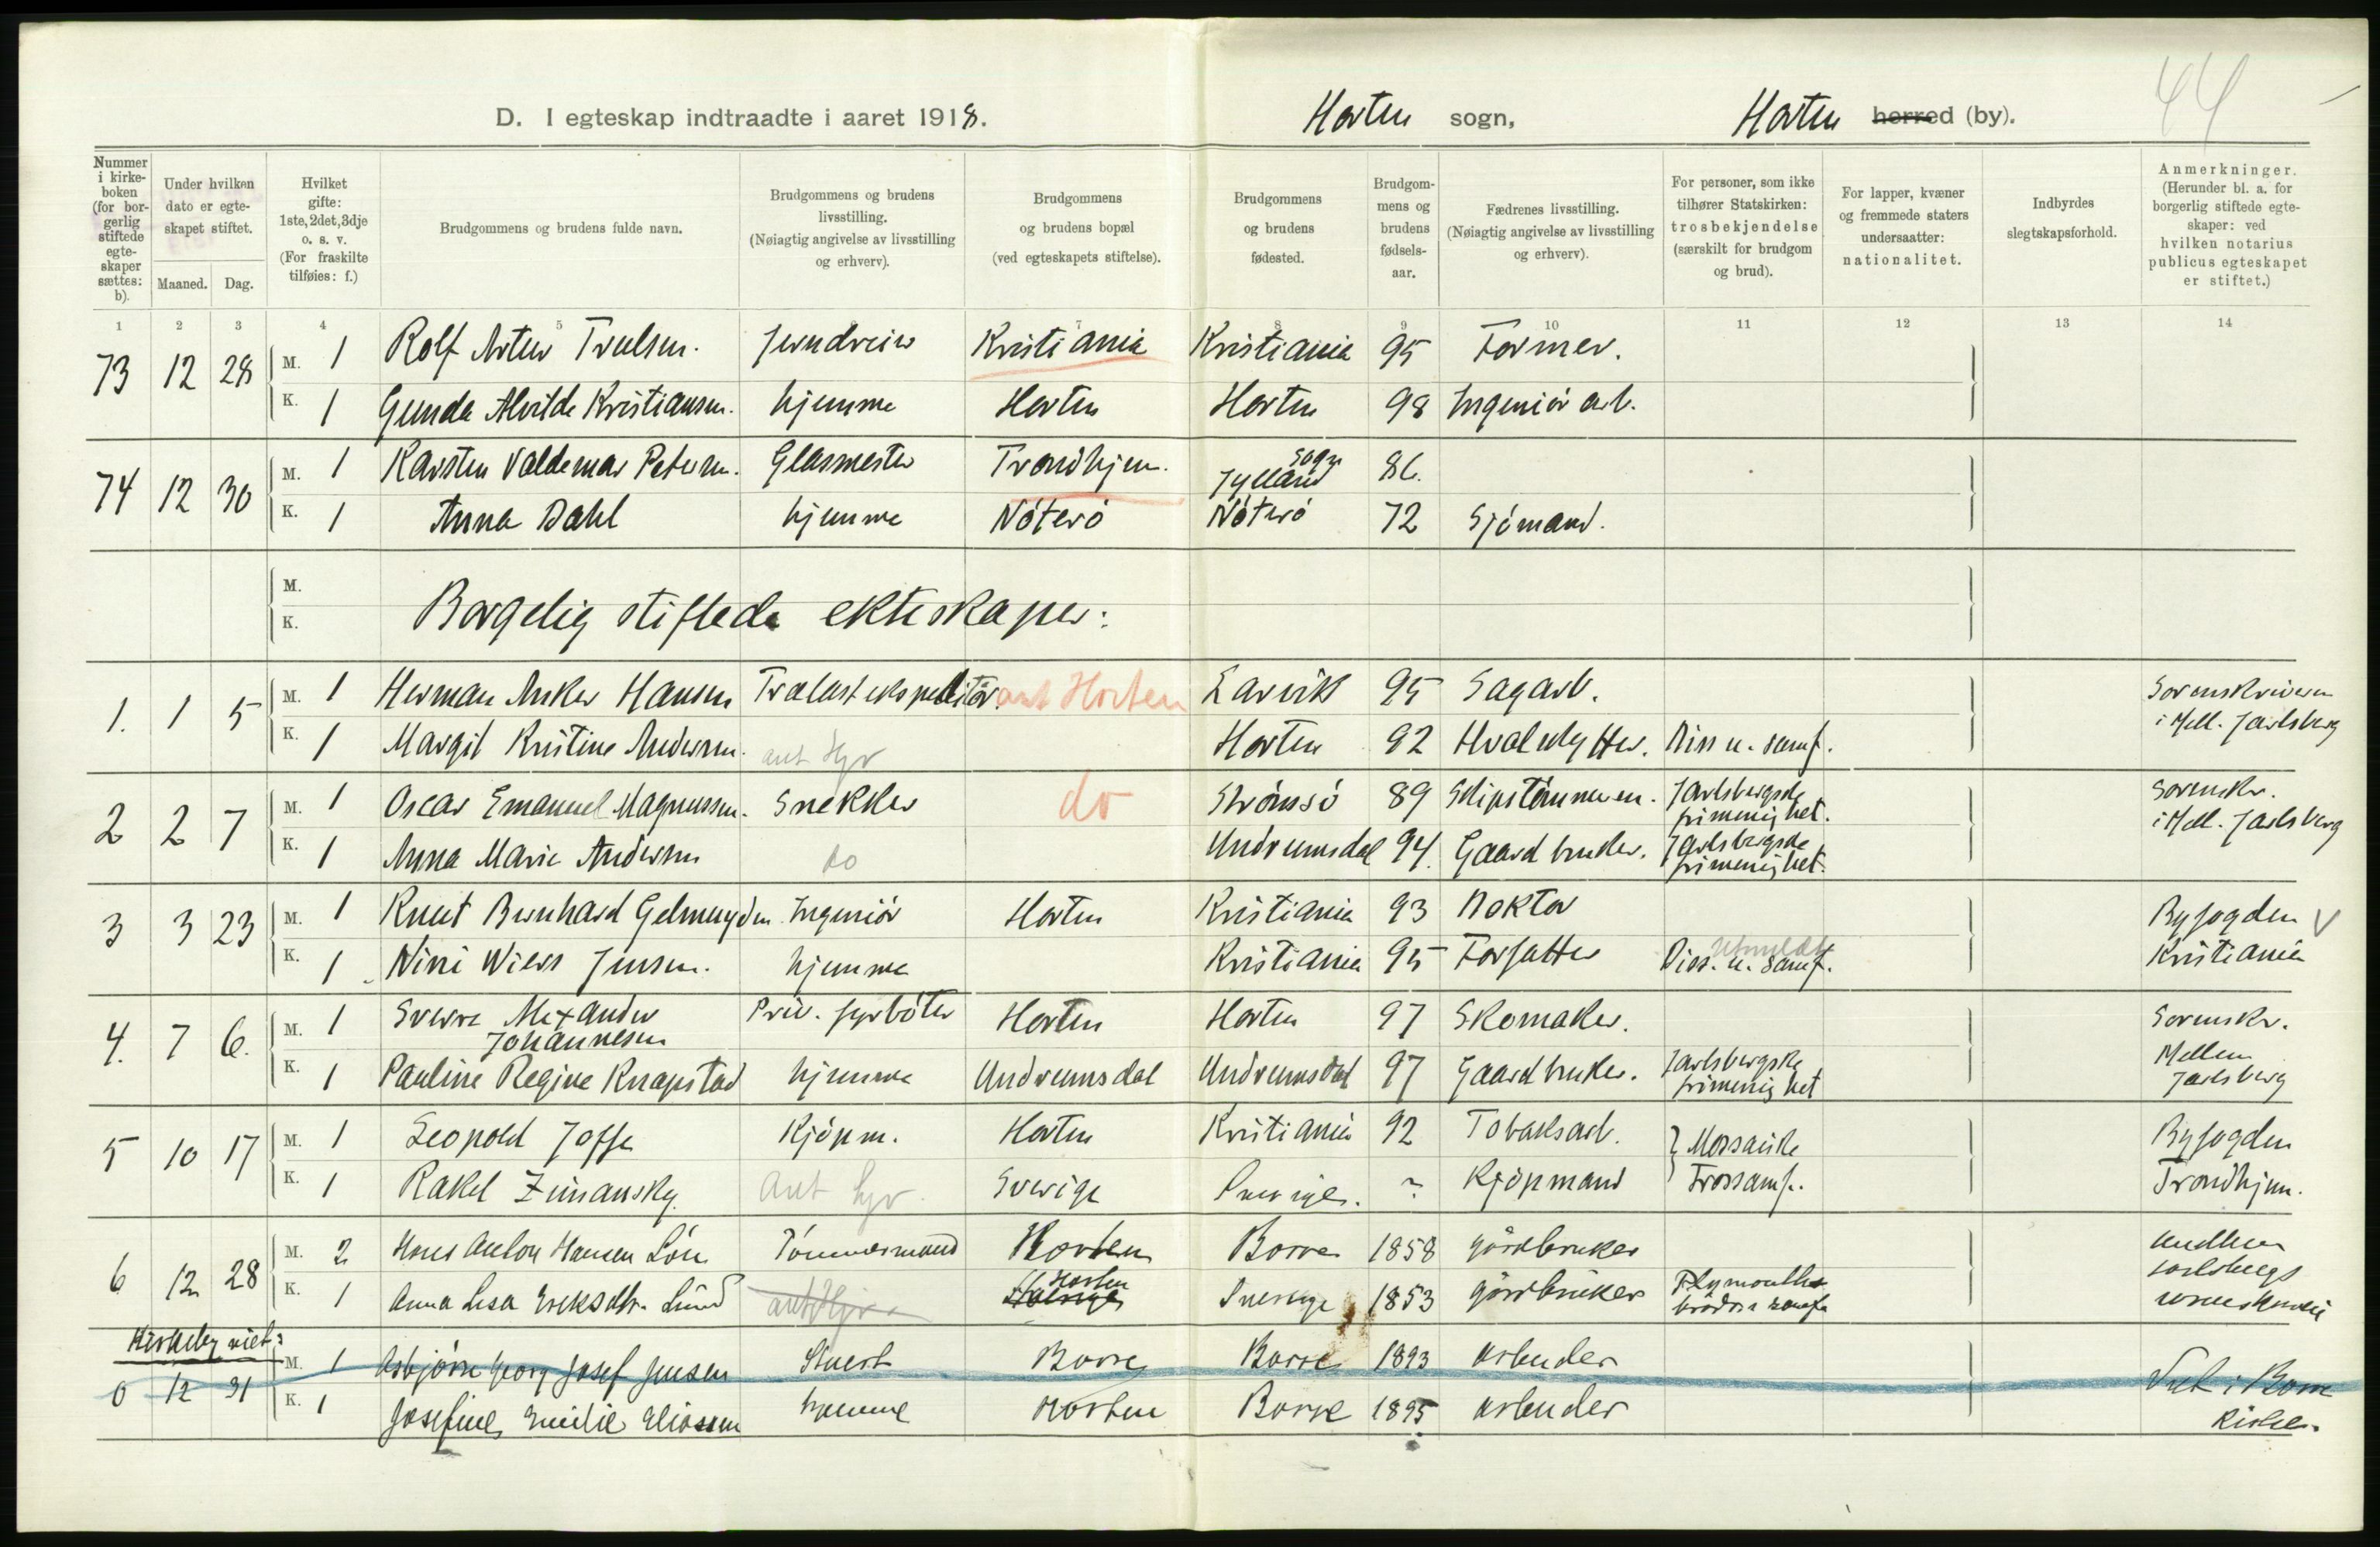 44
D. I egteskap indtraadte i aaret 1918. Horten sogn, Horten herred (by).
Nummer i kirkeboken (for borgerlig stiftede egteskaper sættes: b).
Under hvilken dato er egteskapet stiftet.
Maaned. Dag.
Hvilket gifte: 1ste, 2det, 3dje o. s. v. (For fraskilte tilføies: f.)
Brudgommens og brudens fulde navn.
Brudgommens og brudens livsstilling. (Nøiagtig angivelse av livsstilling og erhverv).
Brudgommens og brudens bopæl (ved egteskapets stiftelse).
Brudgommens og brudens fødested.
Brudgommens og brudens fødselsaar.
Fædrenes livsstilling. (Nøiagtig angivelse av livsstilling og erhverv).
For personer, som ikke tilhører Statskirken: trosbekjendelse (særskilt for brudgom og brud).
For lapper, kvæner og fremmede staters undersaatter: nationalitet.
Indbyrdes slegtskapsforhold.
Anmerkninger. (Herunder bl. a. for borgerlig stiftede egteskaper: ved hvilken notarius publicus egteskapet er stiftet.)
1 2 3 4 5 7 8 9 10 11 12 13 14
73 12 28 M. 1 Rolf Artur Trulsen. Jerndreier Kristiania Kristiania 95 Former.
K. 1 Gunda Alvilde Kristiansen. hjemme Horten Horten 98 Ingeniør arb.
74 12 30 M. 1 Karsten Valdemar Petersen. Glasmester Trondhjem. Jylland Sogn 86.
K. 1 Anna Dahl hjemme Nøterø Nøterø 72 Sjømand.
M.
K. Borgelig stiftede ekteskaper:
1. 1 5 M. 1 Herman Anker Hansen Trælastekspeditør. ant Horten Larvik 95 Sagarb. Sorenskriveren
K. 1 Margit Kristine Andersen. ant Hjv Horten 92 Hvalskytter. Diss u. samf. i Mell. Jarlsberg
2 2 7 M. 1 Oscar Emanuel Magnussen. Snekker do Strømsø 89 Skipstømmerm. Jarlsbergske frimenighet. Sorenskr.
K. 1 Anna Marie Andersen do Undrumsdal 94. Gaardbruker. Jarlsbergske frimenighet. i Mell. Jarlsberg
3 3 23 M. 1 Knut Bernhard Gelmuyden Ingeniør Horten Kristiania 93 Doktor Byfogden V
K. 1 Nini Wiers Jensen. hjemme Kristiania 95 Forfatter Diss. u. samf. Utmeldt Kristiania
4. 7 6. M. 1 Sverre Alexander Johannesen Priv. fyrbøter Horten Horten 97 Skomaker. Sorenskr.
K. 1 Pauline Regine Knapstad hjemme Undrumsdal Undrumsdal 97 Gaardbruker. Jarlsbergske frimenighet Mellem Jarlsberg
5 10 17 M. 1 Leopold Joffe Kjøpm. Horten Kristiania 92 Tobaksarb. } Mossaiske Byfogden
K. 1 Rakel Zimansky. Ant hjv. Sverige Sverige. ? Kjøpmand Trossamf. Trondhjem.
6 12 28 M. 2 Hans Anton Hansen Løn Tømmermand Horten Borre 1858 gårdbruker
K. 1 Anna Lisa Eriksdtr. Lund ant Hjv. Horten Sverige 1853 gårdbruker Plymouth brødre samf.
Kirkelig viet:
0 12 31 M. 1 Asbjørn Georg Josef Jensen Stuert Borre Borre 1893 arbeider Viet i Borre
K. 1 Josefine Emilie Eliassen hjemme Horten Borre 1895 arbeider kirke.